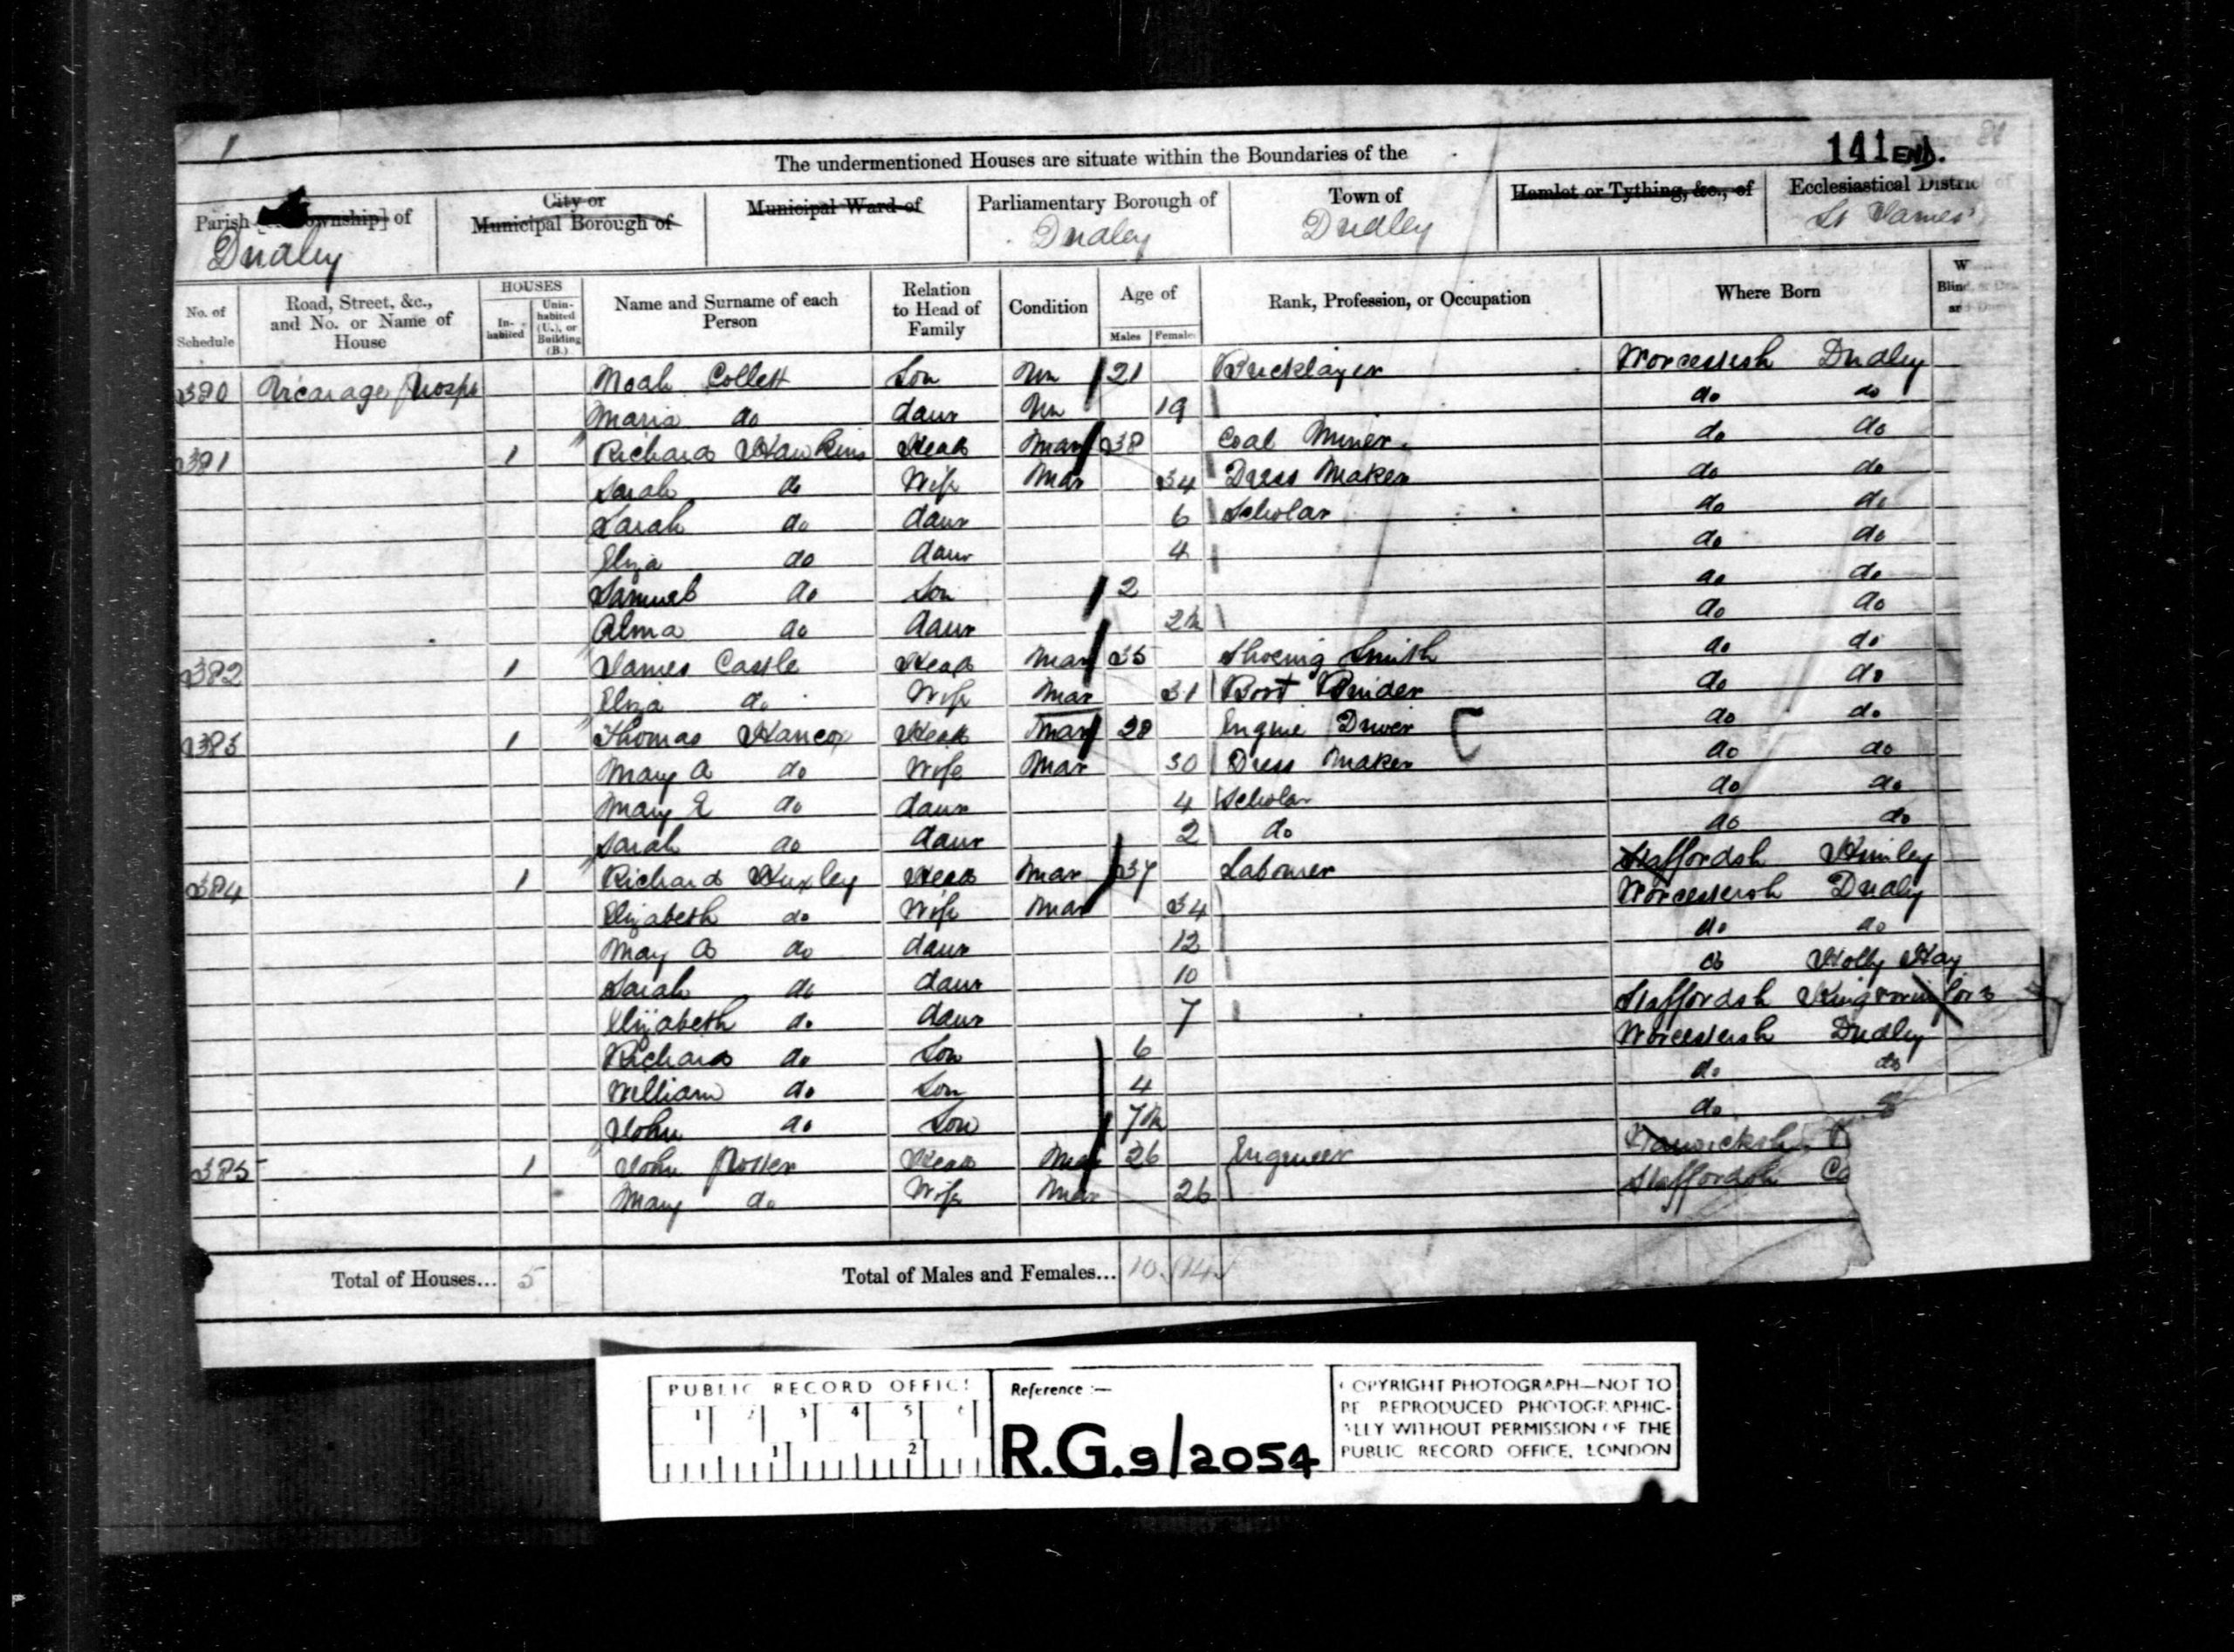 141 END.
The undermentioned Houses are situate within the Boundaries of the
Parish [or Township] of City or Municipal Borough of Municipal Ward of Parliamentary Borough of Town of Hamlet or Tything, &c., of Ecclesiastical District of
Dudley Dudley Dudley St James'
No. of Schedule Road, Street, &c., and No. or Name of House HOUSES In-habited Unin-habited (U.), or Building (B.) Name and Surname of each Person Relation to Head of Family Condition Age of Males Females Rank, Profession, or Occupation Where Born
380 Vicarage Prosp Noah Collett Son Un 21 Bricklayer Worcestersh Dudley
Maria do daur Un 19 do do
381 1 Richard Hawkins Head Mar 38 Coal Miner do do
Sarah do Wife Mar 34 Dress Maker do do
Sarah do daur 6 Scholar do do
Eliza do daur 4 do do
Samuel do Son 2 do do
Alma do daur 2m do do
382 1 James Castle Head Mar 35 Shoeing Smith do do
Eliza do Wife Mar 31 Boot Binder do do
383 1 Thomas Hancox Head Mar 28 Engine Driver C do do
Mary A do Wife Mar 30 Dress Maker do do
Mary E do daur 4 Scholar do do
Sarah do daur 2 do do do
384 1 Richard Huxley Head Mar 37 Labourer Staffordsh Himley
Elizabeth do Wife Mar 34 Worcestersh Dudley
Mary A do daur 12 do do
Sarah do daur 10 do Holly Hay
Elizabeth do daur 7 Staffordsh Kingswinford
Richard do Son 6 Worcestersh Dudley
William do Son 4 do do
John do Son 7m do
385 1 John Foster Head Mar 26 Engineer Warwicksh
Mary do Wife Mar 26 Staffordsh Co
Total of Houses... 5 Total of Males and Females... 10 14
PUBLIC RECORD OFFICE
1 2 3 4 5 6
1 2
Reference :—
R.G.9/2054
COPYRIGHT PHOTOGRAPH—NOT TO
BE REPRODUCED PHOTOGRAPHIC-
ALLY WITHOUT PERMISSION OF THE
PUBLIC RECORD OFFICE, LONDON